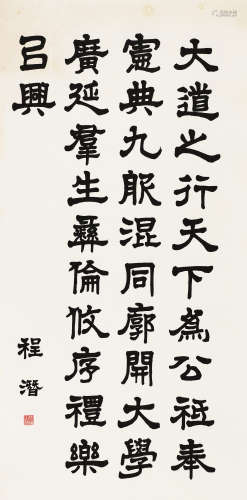 大道之行天下為公祗奉
憲典九服混同廓開大學
廣延羣生彞倫攸序禮樂
以興
程潛